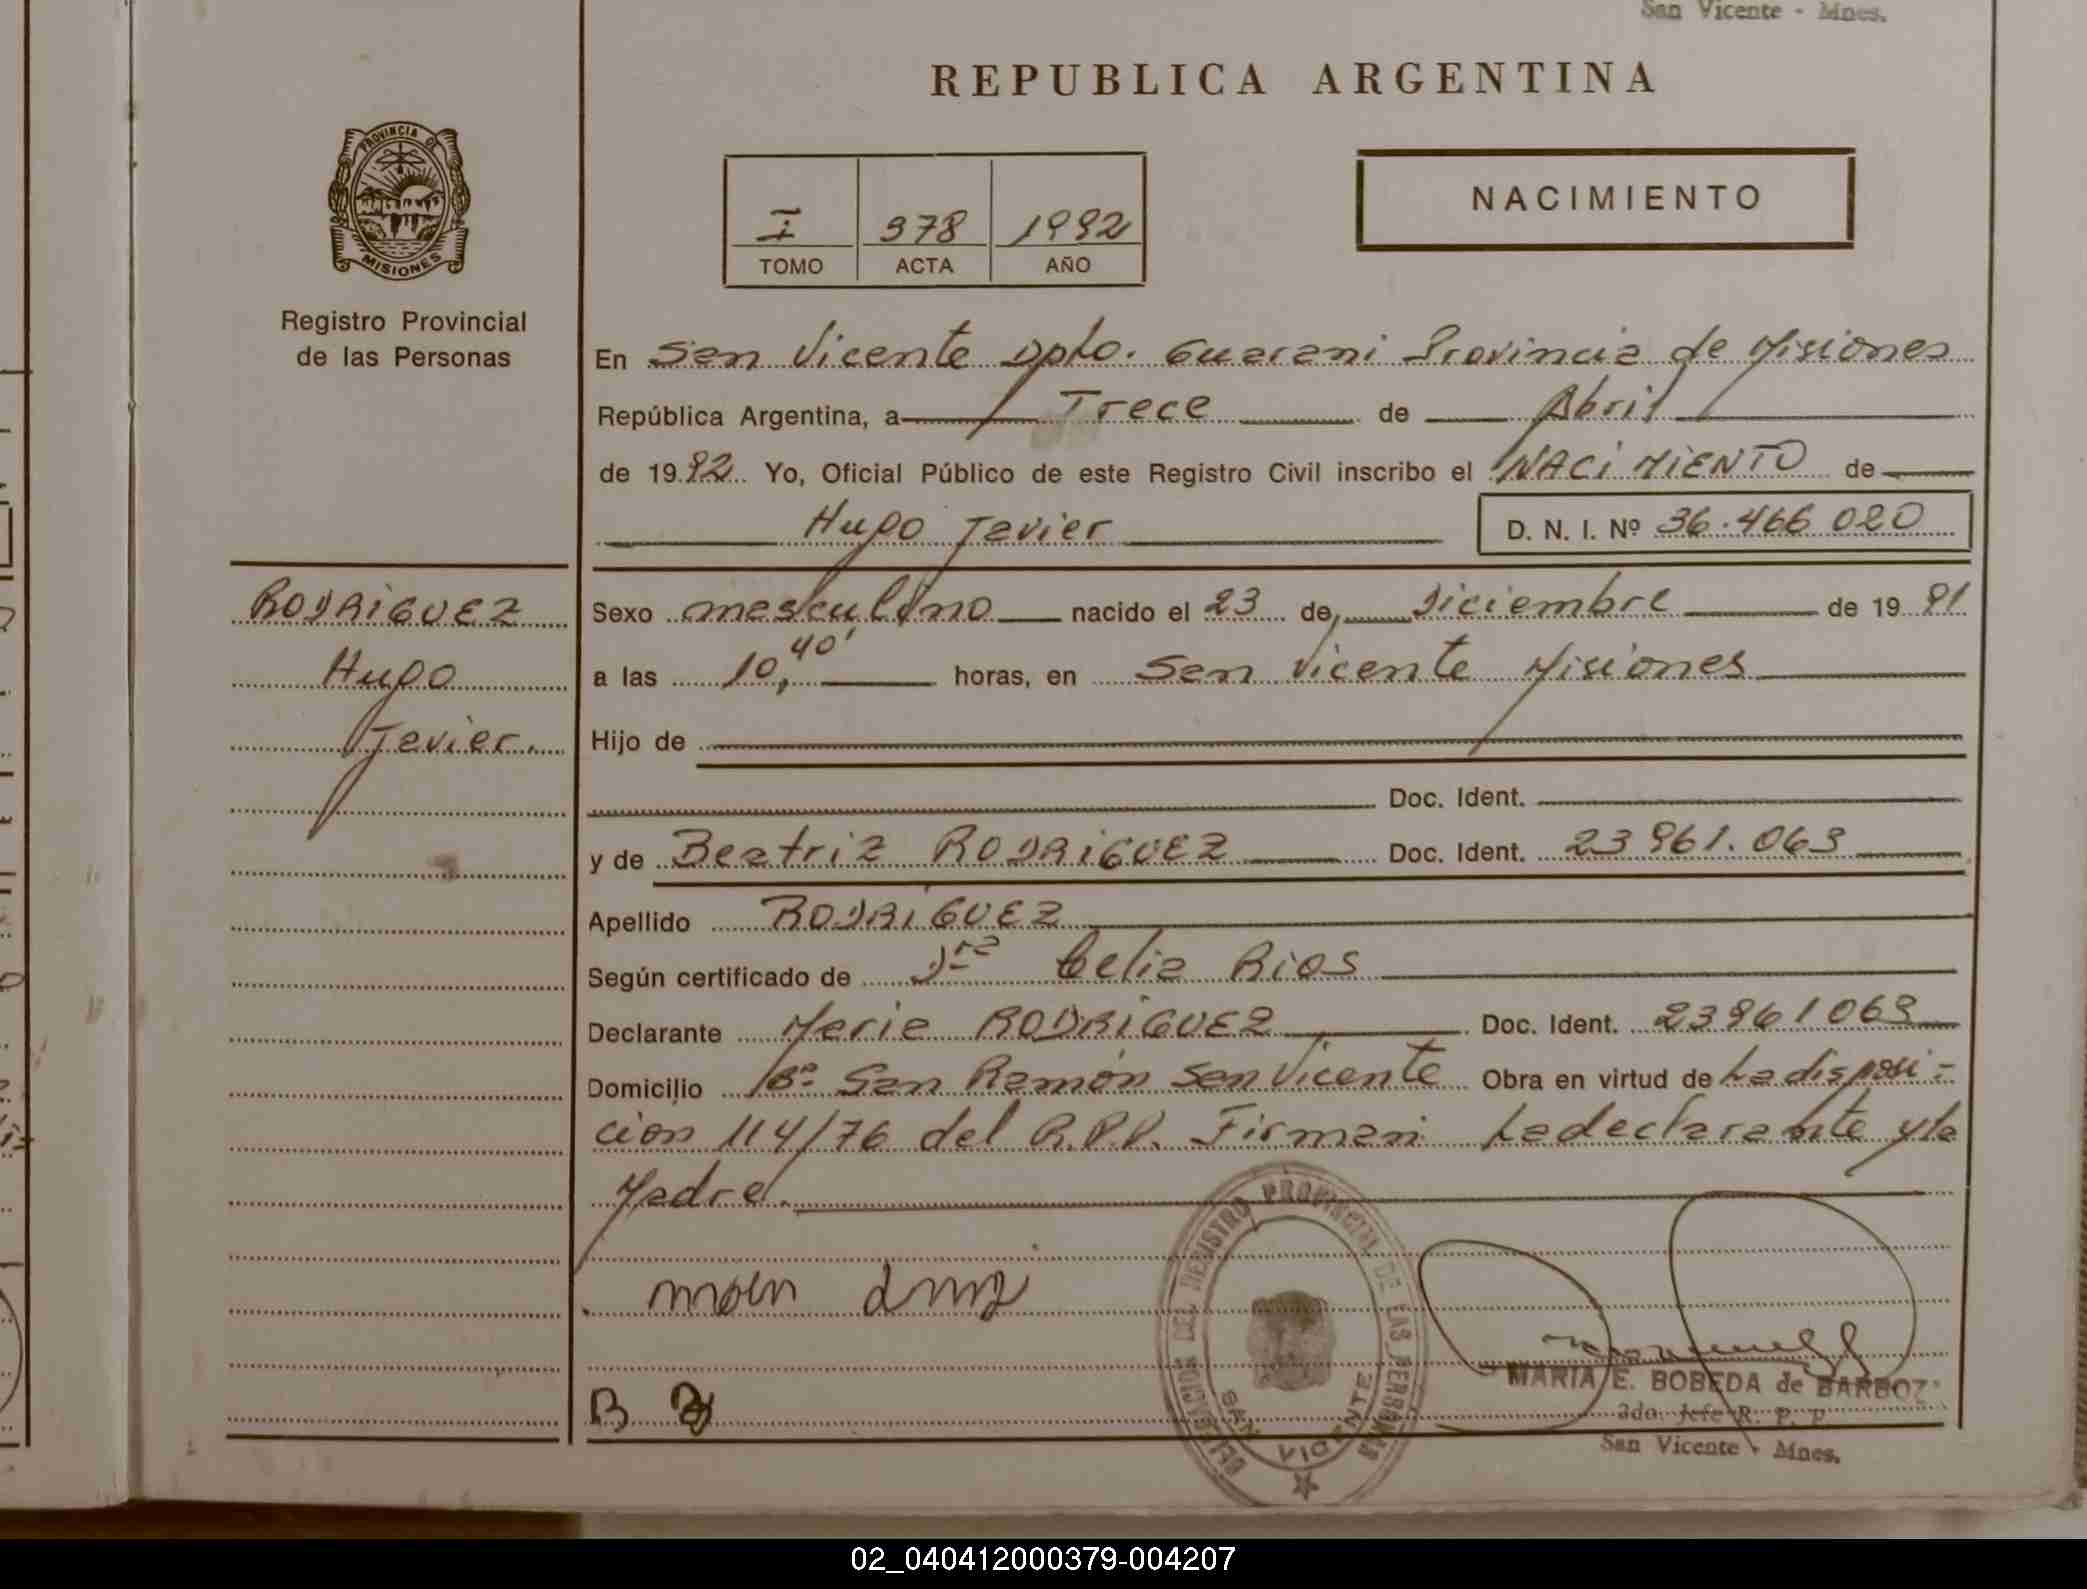 San Vicente - Mnes.
REPUBLICA ARGENTINA
PROVINCIA D
MISIONES
Registro Provincial
de las Personas
I 378 1992
TOMO ACTA AÑO
NACIMIENTO
En San Vicente Dpto. Guarani Provincia de Misiones
República Argentina, a Trece de Abril
de 1992 Yo, Oficial Público de este Registro Civil inscribo el NACIMIENTO de
Hugo Javier D. N. I. Nº 36.466 020
RODRIGUEZ
Hugo
Javier.
Sexo masculino nacido el 23 de Diciembre de 1991
a las 10,40' horas, en San Vicente Misiones
Hijo de
Doc. Ident.
y de Beatriz RODRIGUEZ Doc. Ident. 23961.063
Apellido RODRIGUEZ
Según certificado de Dra Celia Rios
Declarante Maria RODRIGUEZ Doc. Ident. 23961063
Domicilio Bº San Ramón San Vicente Obra en virtud de La disposi-
cion 114/76 del R.P.P. Firman: La declarante y la
Madre.
B
DELEGACION DEL REGISTRO PROVINCIAL DE LAS PERSONAS
SAN VICENTE
MARIA E. BOBEDA de BARBOZ
2do. Jefe R. P. P.
San Vicente - Mnes.
02_040412000379-004207